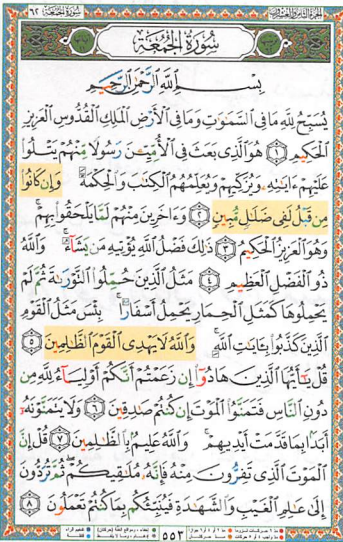 سُورَةُ الجُمُعَةِ ٦٢
الجزء الثامن والعشرون
سُورَةُ الجُمُعَةِ
بِسْمِ اللَّهِ الرَّحْمَٰنِ الرَّحِيمِ
يُسَبِّحُ لِلَّهِ مَا فِي السَّمَٰوَٰتِ وَمَا فِي الْأَرْضِ الْمَلِكِ الْقُدُّوسِ الْعَزِيزِ
الْحَكِيمِ ١ هُوَ الَّذِي بَعَثَ فِي الْأُمِّيِّـنَ رَسُولًا مِّنْهُمْ يَتْلُوا
عَلَيْهِمْ ءَايَٰتِهِۦ وَيُزَكِّيهِمْ وَيُعَلِّمُهُمُ الْكِتَٰبَ وَالْحِكْمَةَ وَإِن كَانُوا
مِن قَبْلُ لَفِي ضَلَٰلٍ مُّبِينٍ ٢ وَءَاخَرِينَ مِنْهُمْ لَمَّا يَلْحَقُوا بِهِمْ
وَهُوَ الْعَزِيزُ الْحَكِيمُ ٣ ذَٰلِكَ فَضْلُ اللَّهِ يُؤْتِيهِ مَن يَشَآءُ وَاللَّهُ
ذُو الْفَضْلِ الْعَظِيمِ ٤ مَثَلُ الَّذِينَ حُمِّلُوا التَّوْرَىٰةَ ثُمَّ لَمْ
يَحْمِلُوهَا كَمَثَلِ الْحِمَارِ يَحْمِلُ أَسْفَارًا بِئْسَ مَثَلُ الْقَوْمِ
الَّذِينَ كَذَّبُوا بِـَٔايَٰتِ اللَّهِ وَاللَّهُ لَا يَهْدِي الْقَوْمَ الظَّٰلِمِينَ ٥
قُلْ يَٰٓأَيُّهَا الَّذِينَ هَادُوٓا إِن زَعَمْتُمْ أَنَّكُمْ أَوْلِيَآءُ لِلَّهِ مِن
دُونِ النَّاسِ فَتَمَنَّوُا الْمَوْتَ إِن كُنتُمْ صَٰدِقِينَ ٦ وَلَا يَتَمَنَّوْنَهُۥٓ
أَبَدًۢا بِمَا قَدَّمَتْ أَيْدِيهِمْ وَاللَّهُ عَلِيمٌۢ بِالظَّٰلِمِينَ ٧ قُلْ إِنَّ
الْمَوْتَ الَّذِي تَفِرُّونَ مِنْهُ فَإِنَّهُۥ مُلَٰقِيكُمْ ثُمَّ تُرَدُّونَ
إِلَىٰ عَٰلِمِ الْغَيْبِ وَالشَّهَٰدَةِ فَيُنَبِّئُكُم بِمَا كُنتُمْ تَعْمَلُونَ ٨
٥٥٣